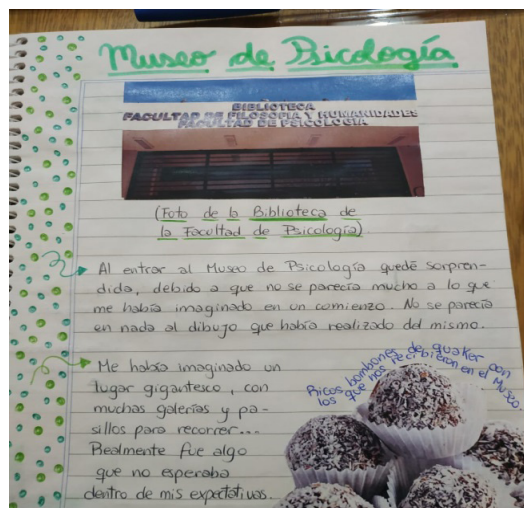 Museo de Psicología
BIBLIOTECA
FACULTAD DE FILOSOFIA Y HUMANIDADES
FACULTAD DE PSICOLOGIA
(Foto de la Biblioteca de
la Facultad de Psicología)
Al entrar al Museo de Psicología quedé sorpren-
dida, debido a que no se parecía mucho a lo que
me había imaginado en un comienzo. No se parecía
en nada al dibujo que había realizado del mismo.
Me había imaginado un
lugar gigantesco, con
muchas galerías y pa-
sillos para recorrer...
Realmente fue algo
que no esperaba
dentro de mis expectativas.
Ricos bombones de quaker con
los que nos recibieron en el Museo.